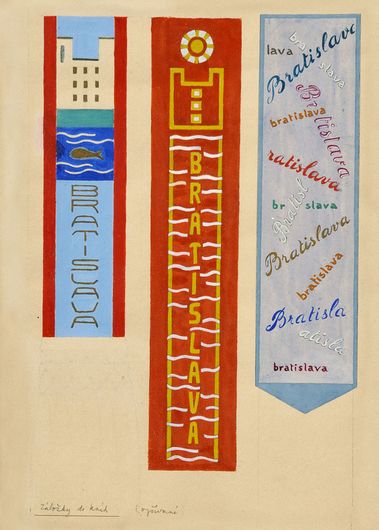 BRATISLAVA
BRATISLAVA
bra slava
lava
Bratislava
Bratislava
bratislava
ratislava
br slava
Bratisl
Bratislava
bratislava
Bratisla
atisla
bratislava
Záložky do kníh